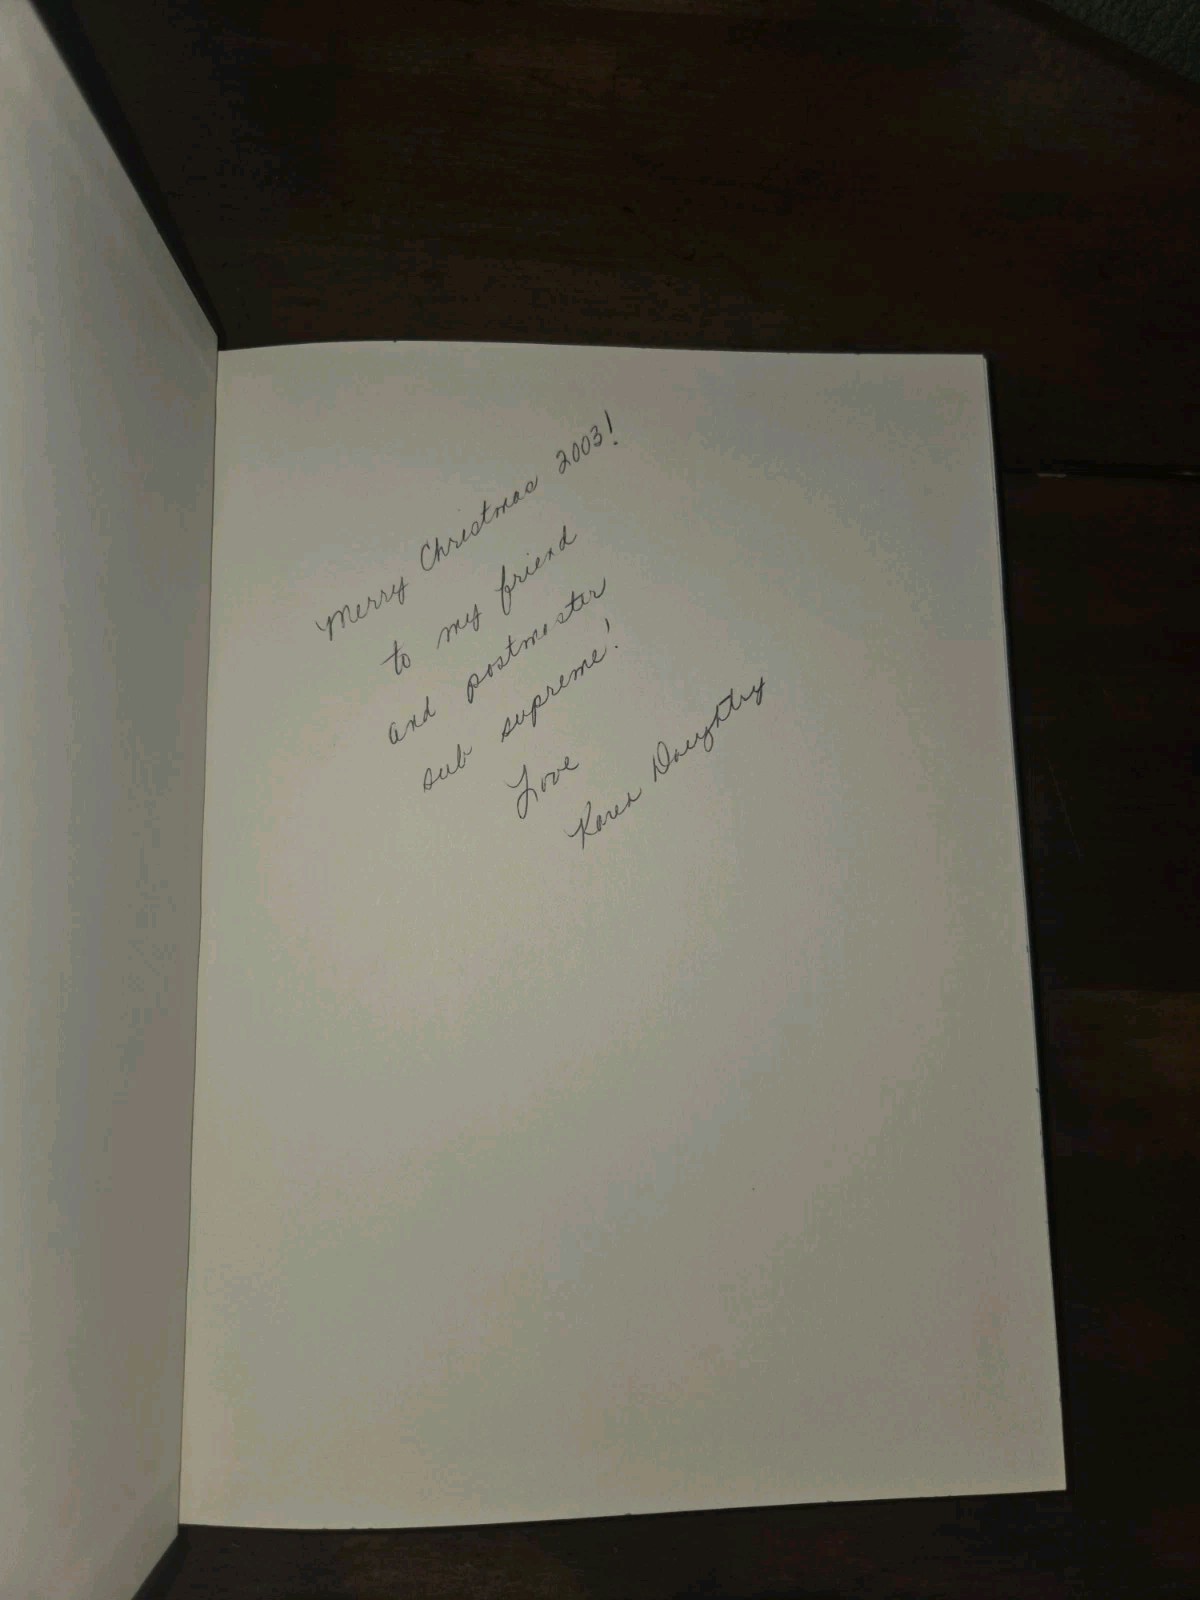 Merry Christmas 2003!
to my friend
and postmaster
sub supreme!
Love
Karen Daughtry